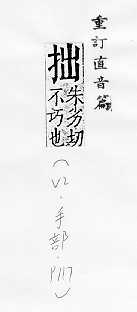 重訂直音篇
拙
朱劣切
不巧也
(V2.手部.P117)